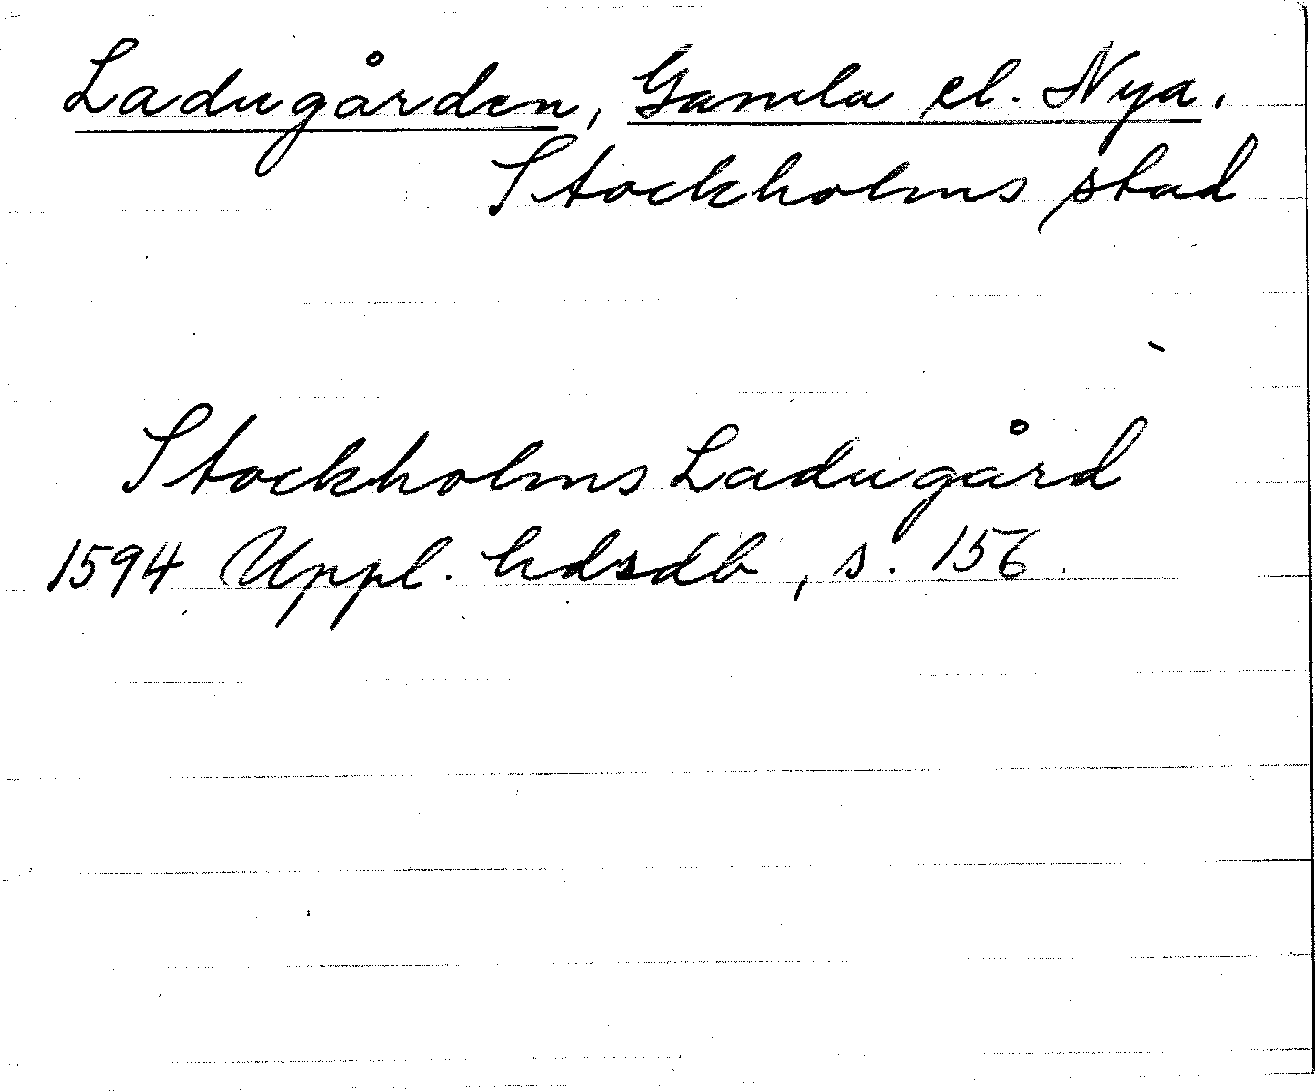 Ladugården, Gamla el. Nya,
Stockholms stad
Stockholms Ladugård
1594 Uppl. hdsdb, s. 156